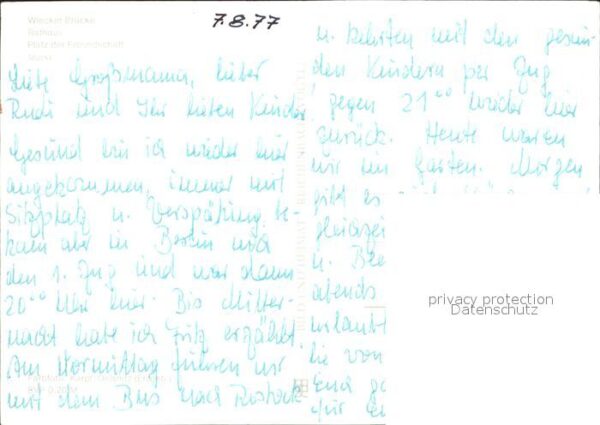 Wiecker Brücke
Rathaus
Platz der Freundschaft
Mole
7.8.77
Liebe Großmama, lieber
Rudi und Ihr lieben Kinder!
Gesund bin ich wieder hier
angekommen, immer mit
Sitzplatz u. Verspätung, be-
kam aber in Berlin noch
den 1. Zug und war dann
20⁰⁰ Uhr hier. Bis Mitter-
nacht hatte ich Fritz erzählt.
Am Vormittag fuhren wir
mit dem Bus nach Rostock
u. kehrten mit den gesun-
den Kindern per Zug
gegen 21⁰⁰ wieder hier
zurück. Heute waren
wir im Garten. Morgen
gibt es
gleichzei
u. Bee
abends
urlaubt
die von
für
privacy protection
Datenschutz